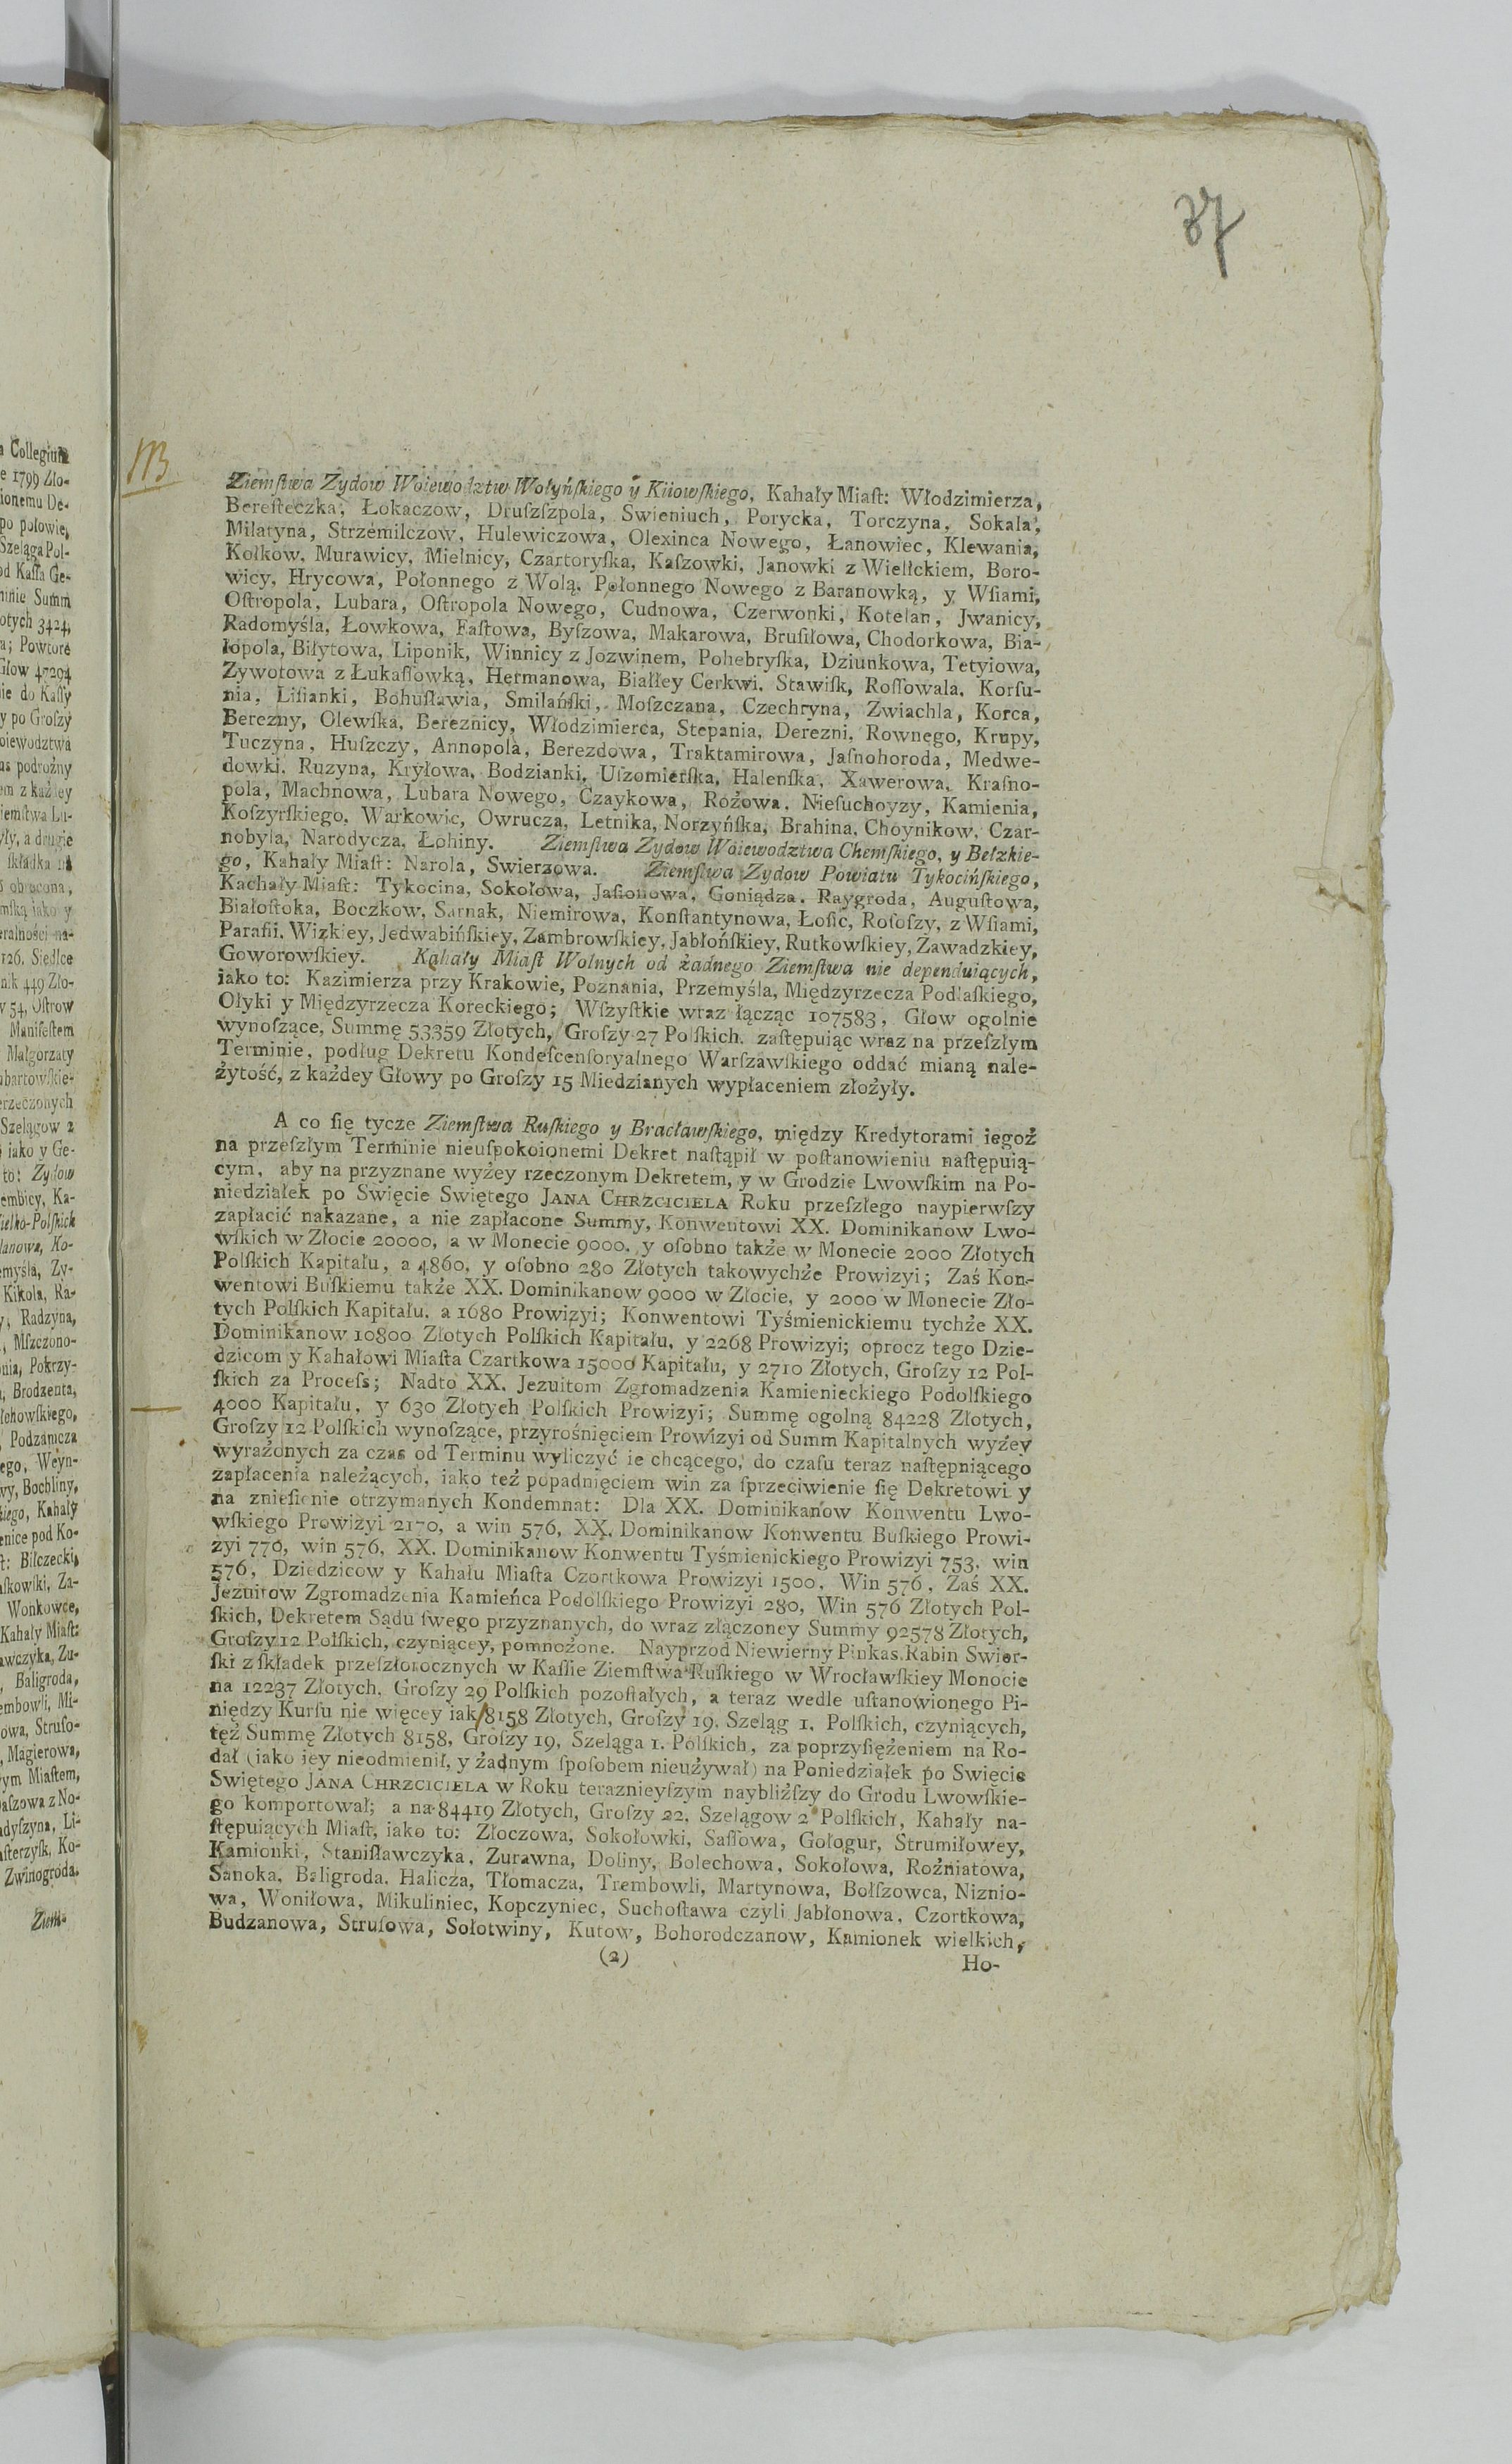 37
NB
Ziemſtwa Zydow Woiewodztw Wołyńſkiego y Kiiowſkiego, Kahały Miaſt: Włodzimierza,
Bereſteczka, Łokaczow, Druſzſzpola, Swieniuch, Porycka, Torczyna, Sokala,
Milatyna, Strzemilczow, Hulewiczowa, Olexinca Nowego, Łanowiec, Klewania,
Kołkow, Murawicy, Mielnicy, Czartoryſka, Kaſzowki, Janowki z Wielſckiem, Boro-
wicy, Hrycowa, Połonnego z Wolą, Połonnego Nowego z Baranowką, y Wſiami,
Oſtropola, Lubara, Oſtropola Nowego, Cudnowa, Czerwonki, Kotelan, Jwanicy,
Radomyśla, Łowkowa, Faſtowa, Byſzowa, Makarowa, Bruſiłowa, Chodorkowa, Bia-
łopola, Biłytowa, Liponik, Winnicy z Jozwinem, Pohebryſka, Dziunkowa, Tetyiowa,
Zywotowa z Łukaſſowką, Hermanowa, Białſey Cerkwi, Stawiſk, Roſſowala, Korſu-
nia, Liſianki, Bohuſławia, Smilańſki, Moſzczana, Czechryna, Zwiachla, Korca,
Berezny, Olewſka, Bereznicy, Włodzimierca, Stepania, Derezni, Rownego, Krupy,
Tuczyna, Huſzczy, Annopola, Berezdowa, Traktamirowa, Jaſnohoroda, Medwe-
dowki, Ruzyna, Kryłowa, Bodzianki, Uſzomierſka, Halenſka, Xawerowa, Kraſno-
pola, Machnowa, Lubara Nowego, Czaykowa, Rożowa, Nieſuchoyzy, Kamienia,
Koſzyrſkiego, Warkowic, Owrucza, Letnika, Norzyńſka, Brahina, Choynikow, Czar-
nobyla, Narodycza, Łohiny. Ziemſtwa Zydow Woiewodztwa Chemſkiego, y Bełzkie-
go, Kahały Miaſt: Narola, Swierzowa. Ziemſtwa Zydow Powiatu Tykocińſkiego,
Kachały Miaſt: Tykocina, Sokołowa, Jaſionowa, Goniądza, Raygroda, Auguſtowa,
Białoſtoka, Boczkow, Sarnak, Niemirowa, Konſtantynowa, Łoſic, Roſoſzy, z Wſiami,
Parafii, Wizkiey, Jedwabińſkiey, Zambrowſkiey, Jabłońſkiey, Rutkowſkiey, Zawadzkiey,
Goworowſkiey. Kahały Miaſt Wolnych od żadnego Ziemſtwa nie dependuiących,
iako to: Kazimierza przy Krakowie, Poznania, Przemyśla, Międzyrzecza Podlaſkiego,
Ołyki y Międzyrzecza Koreckiego; Wſzyſtkie wraz łącząc 107583, Głow ogolnie
wynoſzące, Summę 53359 Złotych, Groſzy 27 Polſkich, zaſtępuiąc wraz na przeſzłym
Terminie, podług Dekretu Kondeſcenſoryalnego Warſzawſkiego oddać mianą nale-
żytość, z każdey Głowy po Groſzy 15 Miedzianych wypłaceniem złożyły.
A co ſię tycze Ziemſtwa Ruſkiego y Bracławſkiego, między Kredytorami iegoż
na przeſzłym Terminie nieuſpokoionemi Dekret naſtąpił w poſtanowieniu naſtępuią-
cym, aby na przyznane wyżey rzeczonym Dekretem, y w Grodzie Lwowſkim na Po-
niedziałek po Swięcie Swiętego JANA CHRZCICIELA Roku przeſzłego naypierwſzy
zapłacić nakazane, a nie zapłacone Summy, Konwentowi XX. Dominikanow Lwo-
wſkich w Złocie 20000, a w Monecie 9000, y oſobno także w Monecie 2000 Złotych
Polſkich Kapitału, a 4860, y oſobno 280 Złotych takowychże Prowizyi; Zaś Kon-
wentowi Buſkiemu także XX. Dominikanow 9000 w Złocie, y 2000 w Monecie Zło-
tych Polſkich Kapitału, a 1680 Prowizyi; Konwentowi Tyśmienickiemu tychże XX.
Dominikanow 10800 Złotych Polſkich Kapitału, y 2268 Prowizyi; oprocz tego Dzie-
dzicom y Kahałowi Miaſta Czartkowa 15000 Kapitału, y 2710 Złotych, Groſzy 12 Pol-
ſkich za Proceſs; Nadto XX. Jezuitom Zgromadzenia Kamienieckiego Podolſkiego
4000 Kapitału, y 630 Złotych Polſkich Prowizyi; Summę ogolną 84228 Złotych,
Groſzy 12 Polſkich wynoſzące, przyrośnięciem Prowizyi od Summ Kapitalnych wyżey
wyrażonych za czas od Terminu wyliczyć ie chcącego, do czaſu teraz naſtępniącego
zapłacenia należących, iako też popadnięciem win za ſprzeciwienie ſię Dekretowi y
na znieſienie otrzymanych Kondemnat: Dla XX. Dominikanow Konwentu Lwo-
wſkiego Prowizyi 2170, a win 576, XX. Dominikanow Konwentu Buſkiego Prowi-
zyi 770, win 576, XX. Dominikanow Konwentu Tyśmienickiego Prowizyi 753, win
576, Dziedzicow y Kahału Miaſta Czortkowa Prowizyi 1500, Win 576, Zaś XX.
Jezuitow Zgromadzenia Kamieńca Podolſkiego Prowizyi 280, Win 576 Złotych Pol-
ſkich, Dekretem Sądu ſwego przyznanych, do wraz złączoney Summy 92578 Złotych,
Groſzy 12 Polſkich, czyniącey, pomnożone. Nayprzod Niewierny Pinkas Rabin Swier-
ſki z ſkładek przeſzłorocznych w Kaſſie Ziemſtwa Ruſkiego w Wrocławſkiey Monocie
na 12237 Złotych, Groſzy 29 Polſkich pozoſtałych, a teraz wedle uſtanowionego Pi-
niędzy Kurſu nie więcey iak 8158 Złotych, Groſzy 19, Szeląg 1. Polſkich, czyniących,
też Summę Złotych 8158, Groſzy 19, Szeląga 1. Polſkich, za poprzyſiężeniem na Ro-
dał (iako iey nieodmienił, y żadnym ſpoſobem nieużywał) na Poniedziałek po Swięcie
Swiętego JANA CHRZCICIELA w Roku teraznieyſzym naybliżſzy do Grodu Lwowſkie-
go komportował; a na 84419 Złotych, Groſzy 22, Szelągow 2 Polſkich, Kahały na-
ſtępuiących Miaſt, iako to: Złoczowa, Sokołowki, Saſſowa, Gołogur, Strumiłowey,
Kamionki, Staniſławczyka, Zurawna, Doliny, Bolechowa, Sokołowa, Rożniatowa,
Sanoka, Baligroda, Halicza, Tłomacza, Trembowli, Martynowa, Bołſzowca, Niznio-
wa, Woniłowa, Mikuliniec, Kopczyniec, Suchoſtawa czyli Jabłonowa, Czortkowa,
Budzanowa, Struſowa, Sołotwiny, Kutow, Bohorodczanow, Kamionek wielkich,
(2)
Ho-